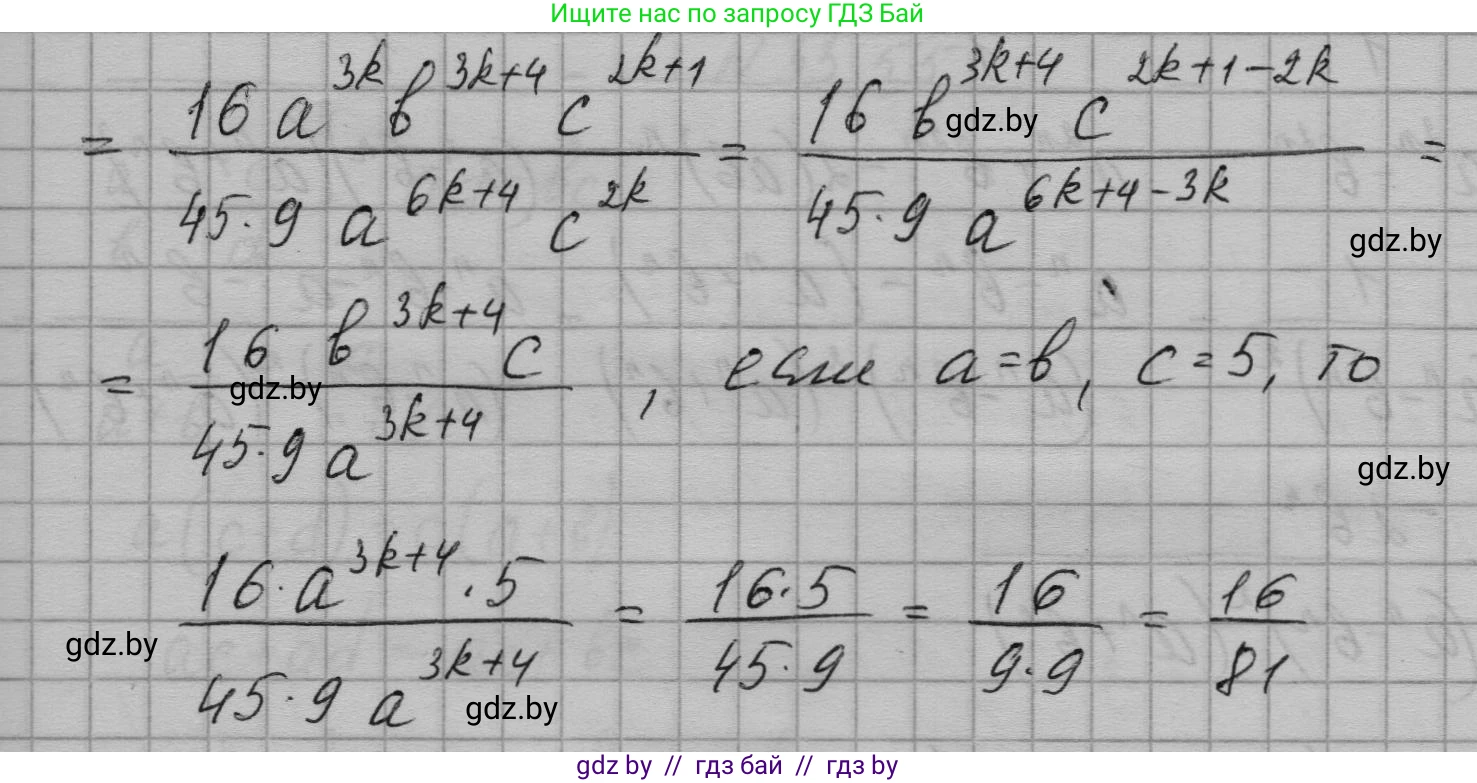 Ищите нас по запросу ГДЗ Бай
= \frac{16 a^{3k} b^{3k+4} c^{2k+1}}{45·9 a^{6k+4} c^{2k}} = \frac{16 b^{3k+4} c^{2k+1-2k}}{45·9 a^{6k+4-3k}} =
gdz.by
gdz.by
= \frac{16 b^{3k+4} c}{45·9 a^{3k+4}}, если a=b, c=5, то
gdz.by
gdz.by
\frac{16·a^{3k+4}·5}{45·9 a^{3k+4}} = \frac{16·5}{45·9} = \frac{16}{9·9} = \frac{16}{81}
gdz.by
gdz.by
gdz by // гдз бай // гдз by